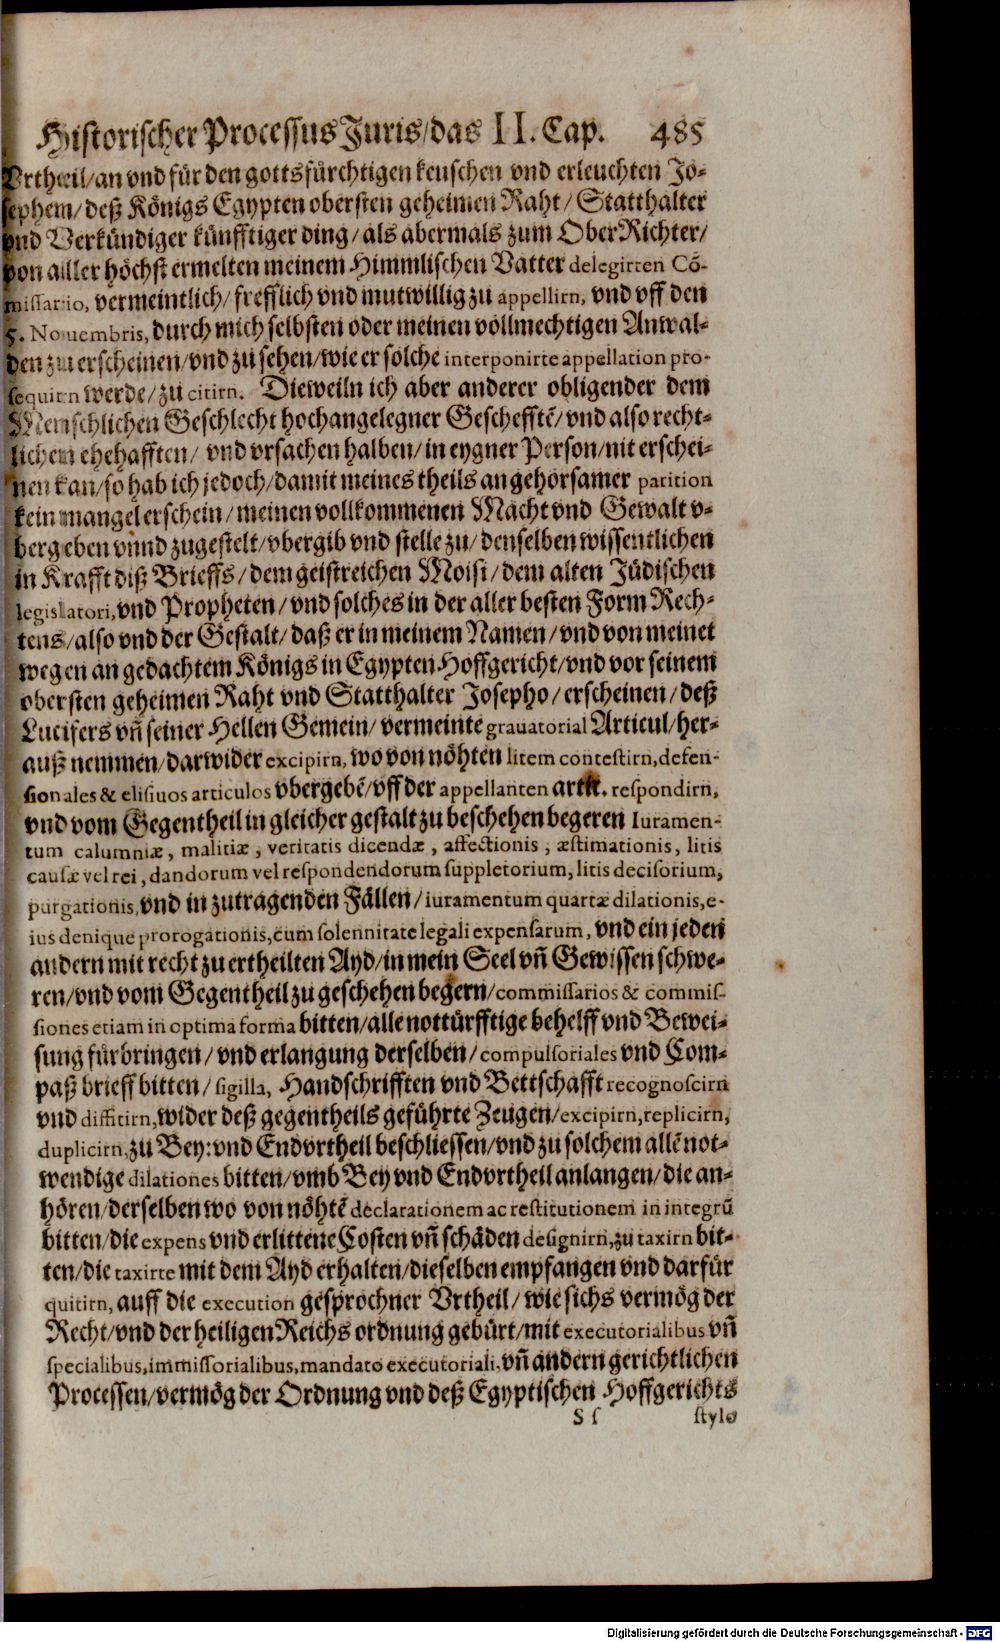 Historischer Processus Juris/das II. Cap. 485
Vrtheil/an vnd für den gottsfürchtigen keuschen vnd erleuchten Jo-
sephem/deß Königs Egypten obersten geheimen Raht/Statthalter
vnd Verkündiger künfftiger ding/als abermals zum OberRichter/
von aller höchst ermelten meinem Himmlischen Vatter delegirten Cõ-
missario, vermeintlich/frefflich vnd mutwillig zu appellirn, vnd vff den
5. Nouembris, durch mich selbsten oder meinen vollmechtigen Anwal-
den zu erscheinen/vnd zu sehen/wie er solche interponirte appellation pro-
sequirn werde/zu citirn. Dieweiln ich aber anderer obligender dem
Menschlichen Geschlecht hochangelegner Geschefftẽ/vnd also recht-
lichen ehehafften/vnd vrsachen halben/in eygner Person/nit erschei-
nen kan/so hab ich jedoch/damit meines theils an gehorsamer parition
kein mangel erschein/meinen vollkommenen Macht vnd Gewalt v-
bergeben vnnd zugestelt/vbergib vnd stelle zu/denselben wissentlichen
in Krafft diß Brieffs/dem geistreichen Moisi/dem alten Jüdischen
legislatori, vnd Propheten/vnd solches in der aller besten Form Rech-
tens/also vnd der Gestalt/daß er in meinem Namen/vnd von meinet
wegen an gedachtem Königs in Egypten Hoffgericht/vnd vor seinem
obersten geheimen Raht vnd Statthalter Josepho/erscheinen/deß
Lucifers vñ seiner Hellen Gemein/vermeinte grauatorial Articul/her-
auß nemmen/darwider excipirn, wo von nöhten litem contestirn, defen-
sionales & elisiuos articulos vbergebẽ/vff der appellanten artic. respondirn,
vnd vom Gegentheil in gleicher gestalt zu beschehen begeren Iuramen-
tum calumniæ, malitiæ, veritatis dicendæ, affectionis, æstimationis, litis
causæ vel rei, dandorum vel respondendorum suppletorium, litis decisorium,
purgationis, vnd in zutragenden Fällen/iuramentum quartæ dilationis, e-
ius denique prorogationis, cum solennitate legali expensarum, vnd ein jeden
andern mit recht zu ertheilten Ayd/in mein Seel vñ Gewissen schwe-
ren/vnd vom Gegentheil zu geschehen begern/commissarios & commis-
siones etiam in optima forma bitten/alle nottürfftige behelff vnd Bewei-
sung fürbringen/vnd erlangung derselben/compulsoriales vnd Com-
paß brieff bitten/sigilla, Handschrifften vnd Bettschafft recognoscirn
vnd diffitirn, wider deß gegentheils geführte Zeugen/excipirn, replicirn,
duplicirn, zu Bey: vnd Endvrtheil beschliessen/vnd zu solchem allẽ not-
wendige dilationes bitten/vmb Bey vnd Endvrtheil anlangen/die an-
hören/derselben wo von nöhtẽ declarationem ac restitutionem in integrũ
bitten/die expens vnd erlittene Costen vñ schäden designirn, zu taxirn bit-
ten/die taxirte mit dem Ayd erhalten/dieselben empfangen vnd darfür
quitirn, auff die execution gesprochner Vrtheil/wie sichs vermög der
Recht/vnd der heiligen Reichs ordnung gebürt/mit executorialibus vñ
specialibus, immissorialibus, mandato executoriali, vñ andern gerichtlichen
Processen/vermög der Ordnung vnd deß Egyptischen Hoffgerichts
S s stylo
Digitalisierung gefördert durch die Deutsche Forschungsgemeinschaft - DFG